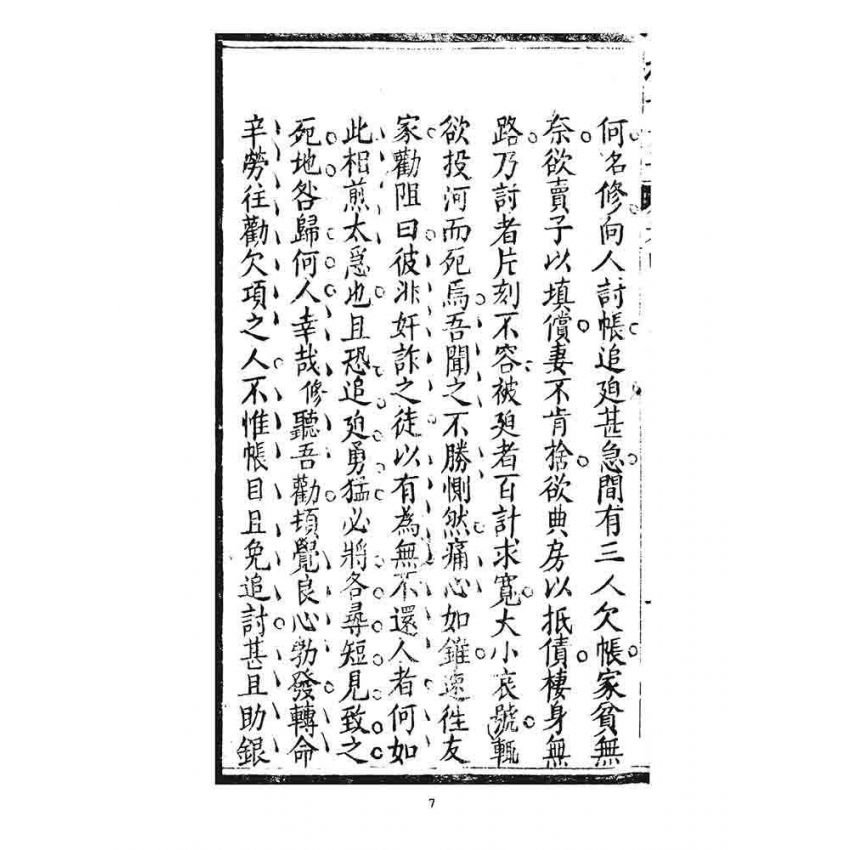 何名修向人討帳追廹甚急間有三人欠帳家貧無
奈欲賣子以填償妻不肯捨欲典房以抵債棲身無
路乃討者片刻不容被廹者百計求寬大小哀號輒
欲投河而死焉吾聞之不勝惻然痛心如錐速徃友
家勸阻曰彼非奸詐之徒以有為無不還人者何如
此相煎太急也且恐追廹勇猛必將各尋短見致之
死地咎歸何人幸哉修聽吾勸頓覺良心勃發轉命
辛勞往勸欠項之人不惟帳目且免追討甚且助銀
7